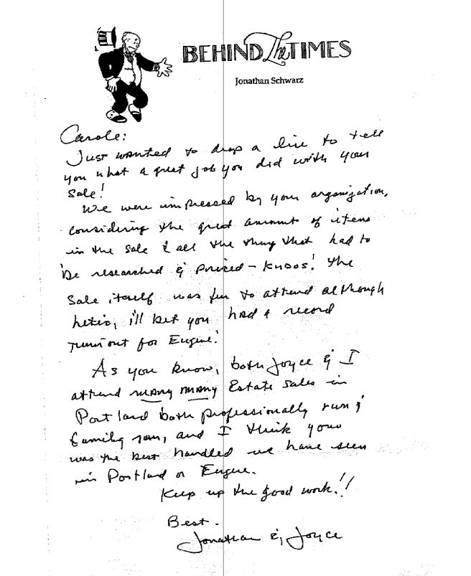 BEHIND The TIMES
Jonathan Schwarz
Carole:
Just wanted to drop a line to tell
you what a great job you did with your
Sale!
We were impressed by your organization,
considering the great amount of items
in the sale & all the thing that had to
be researched & priced - Kudos! The
Sale itself was fun to attend although
hectic, i'll bet you had a record
turnout for Eugene!
As you know, both Joyce & I
attend many many Estate Sales in
Portland both professionally run &
family run, and I think your
was the best handled we have seen
in Portland or Eugene.
Keep up the good work!!
Best.
Jonathan & Joyce